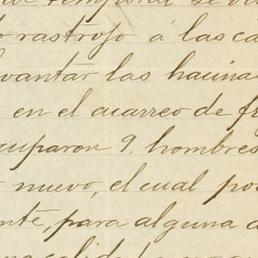 temporal se
rastrojo á las ca
vantar las hacina
en el acarreo de
cuparon 9. hombres
nuevo, el cual po
nte, para alguna a